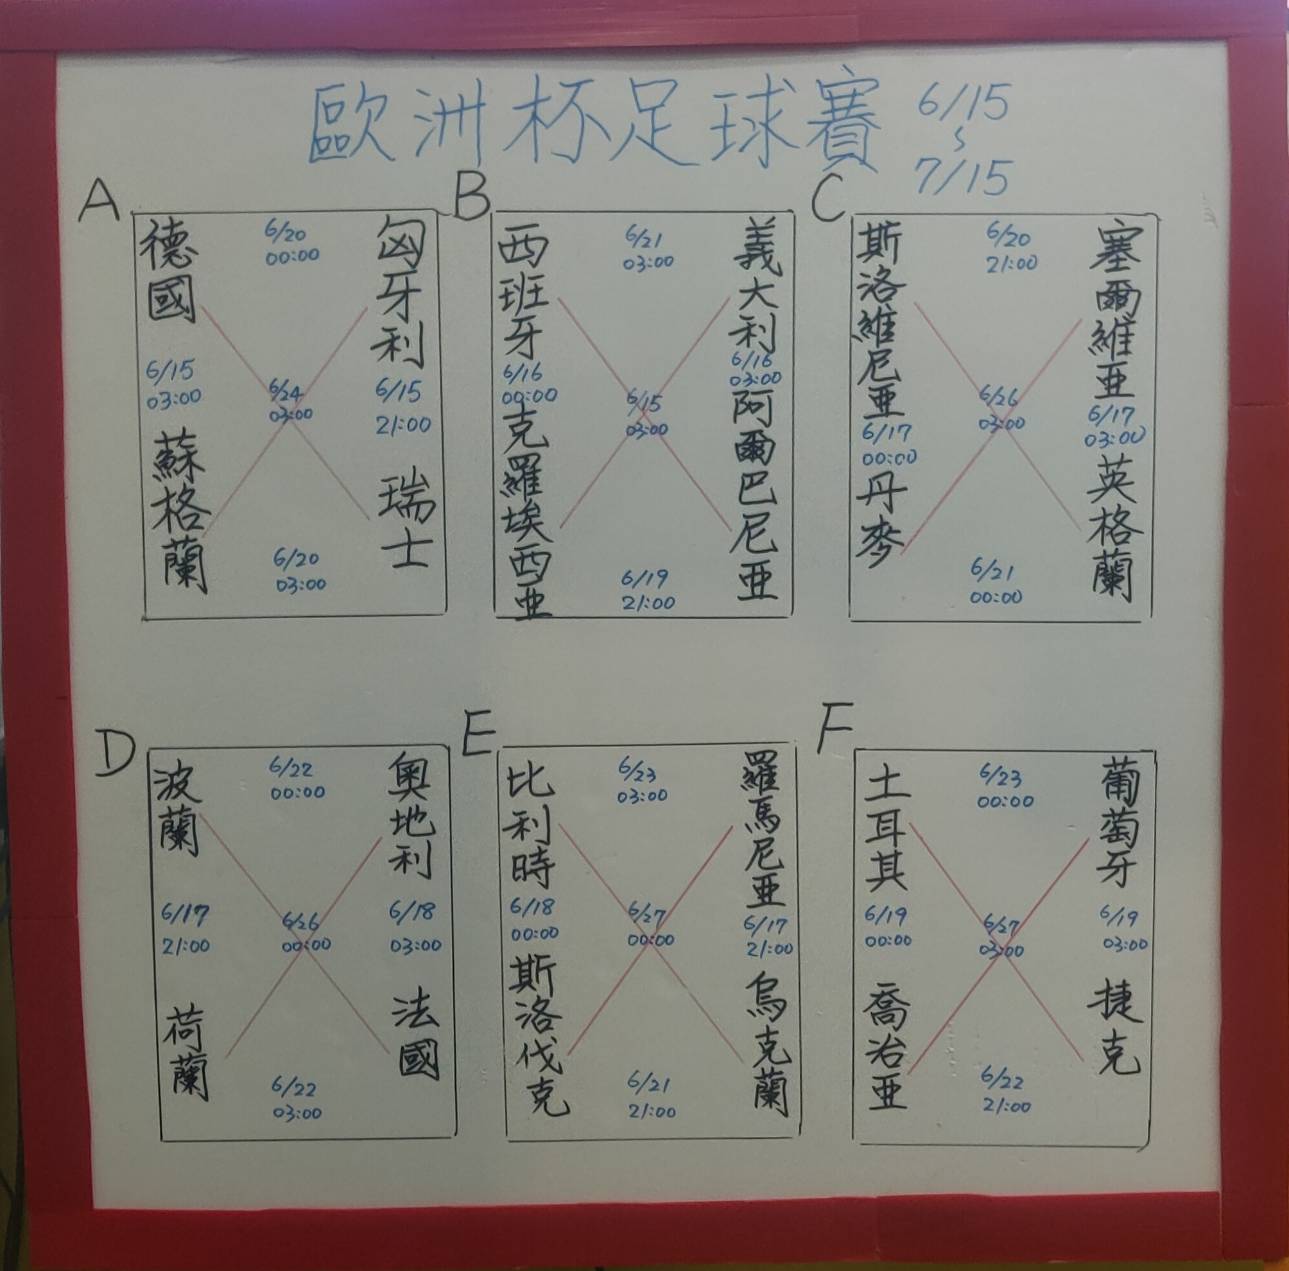 歐洲杯足球賽
6/15
~
7/15
A
德國
6/20
00:00
匈牙利
6/15
03:00
6/24
03:00
6/15
21:00
蘇格蘭
6/20
03:00
瑞士
B
西班牙
6/21
03:00
義大利
6/16
00:00
6/15
03:00
6/16
03:00
克羅埃西亞
6/19
21:00
阿爾巴尼亞
C
斯洛維尼亞
6/20
21:00
塞爾維亞
6/17
00:00
6/26
03:00
6/17
03:00
丹麥
6/21
00:00
英格蘭
D
波蘭
6/22
00:00
奧地利
6/17
21:00
6/26
00:00
6/18
03:00
荷蘭
6/22
03:00
法國
E
比利時
6/23
03:00
羅馬尼亞
6/18
00:00
6/27
00:00
6/17
21:00
斯洛伐克
6/21
21:00
烏克蘭
F
土耳其
6/23
00:00
葡萄牙
6/19
00:00
6/27
03:00
6/19
03:00
喬治亞
6/22
21:00
捷克